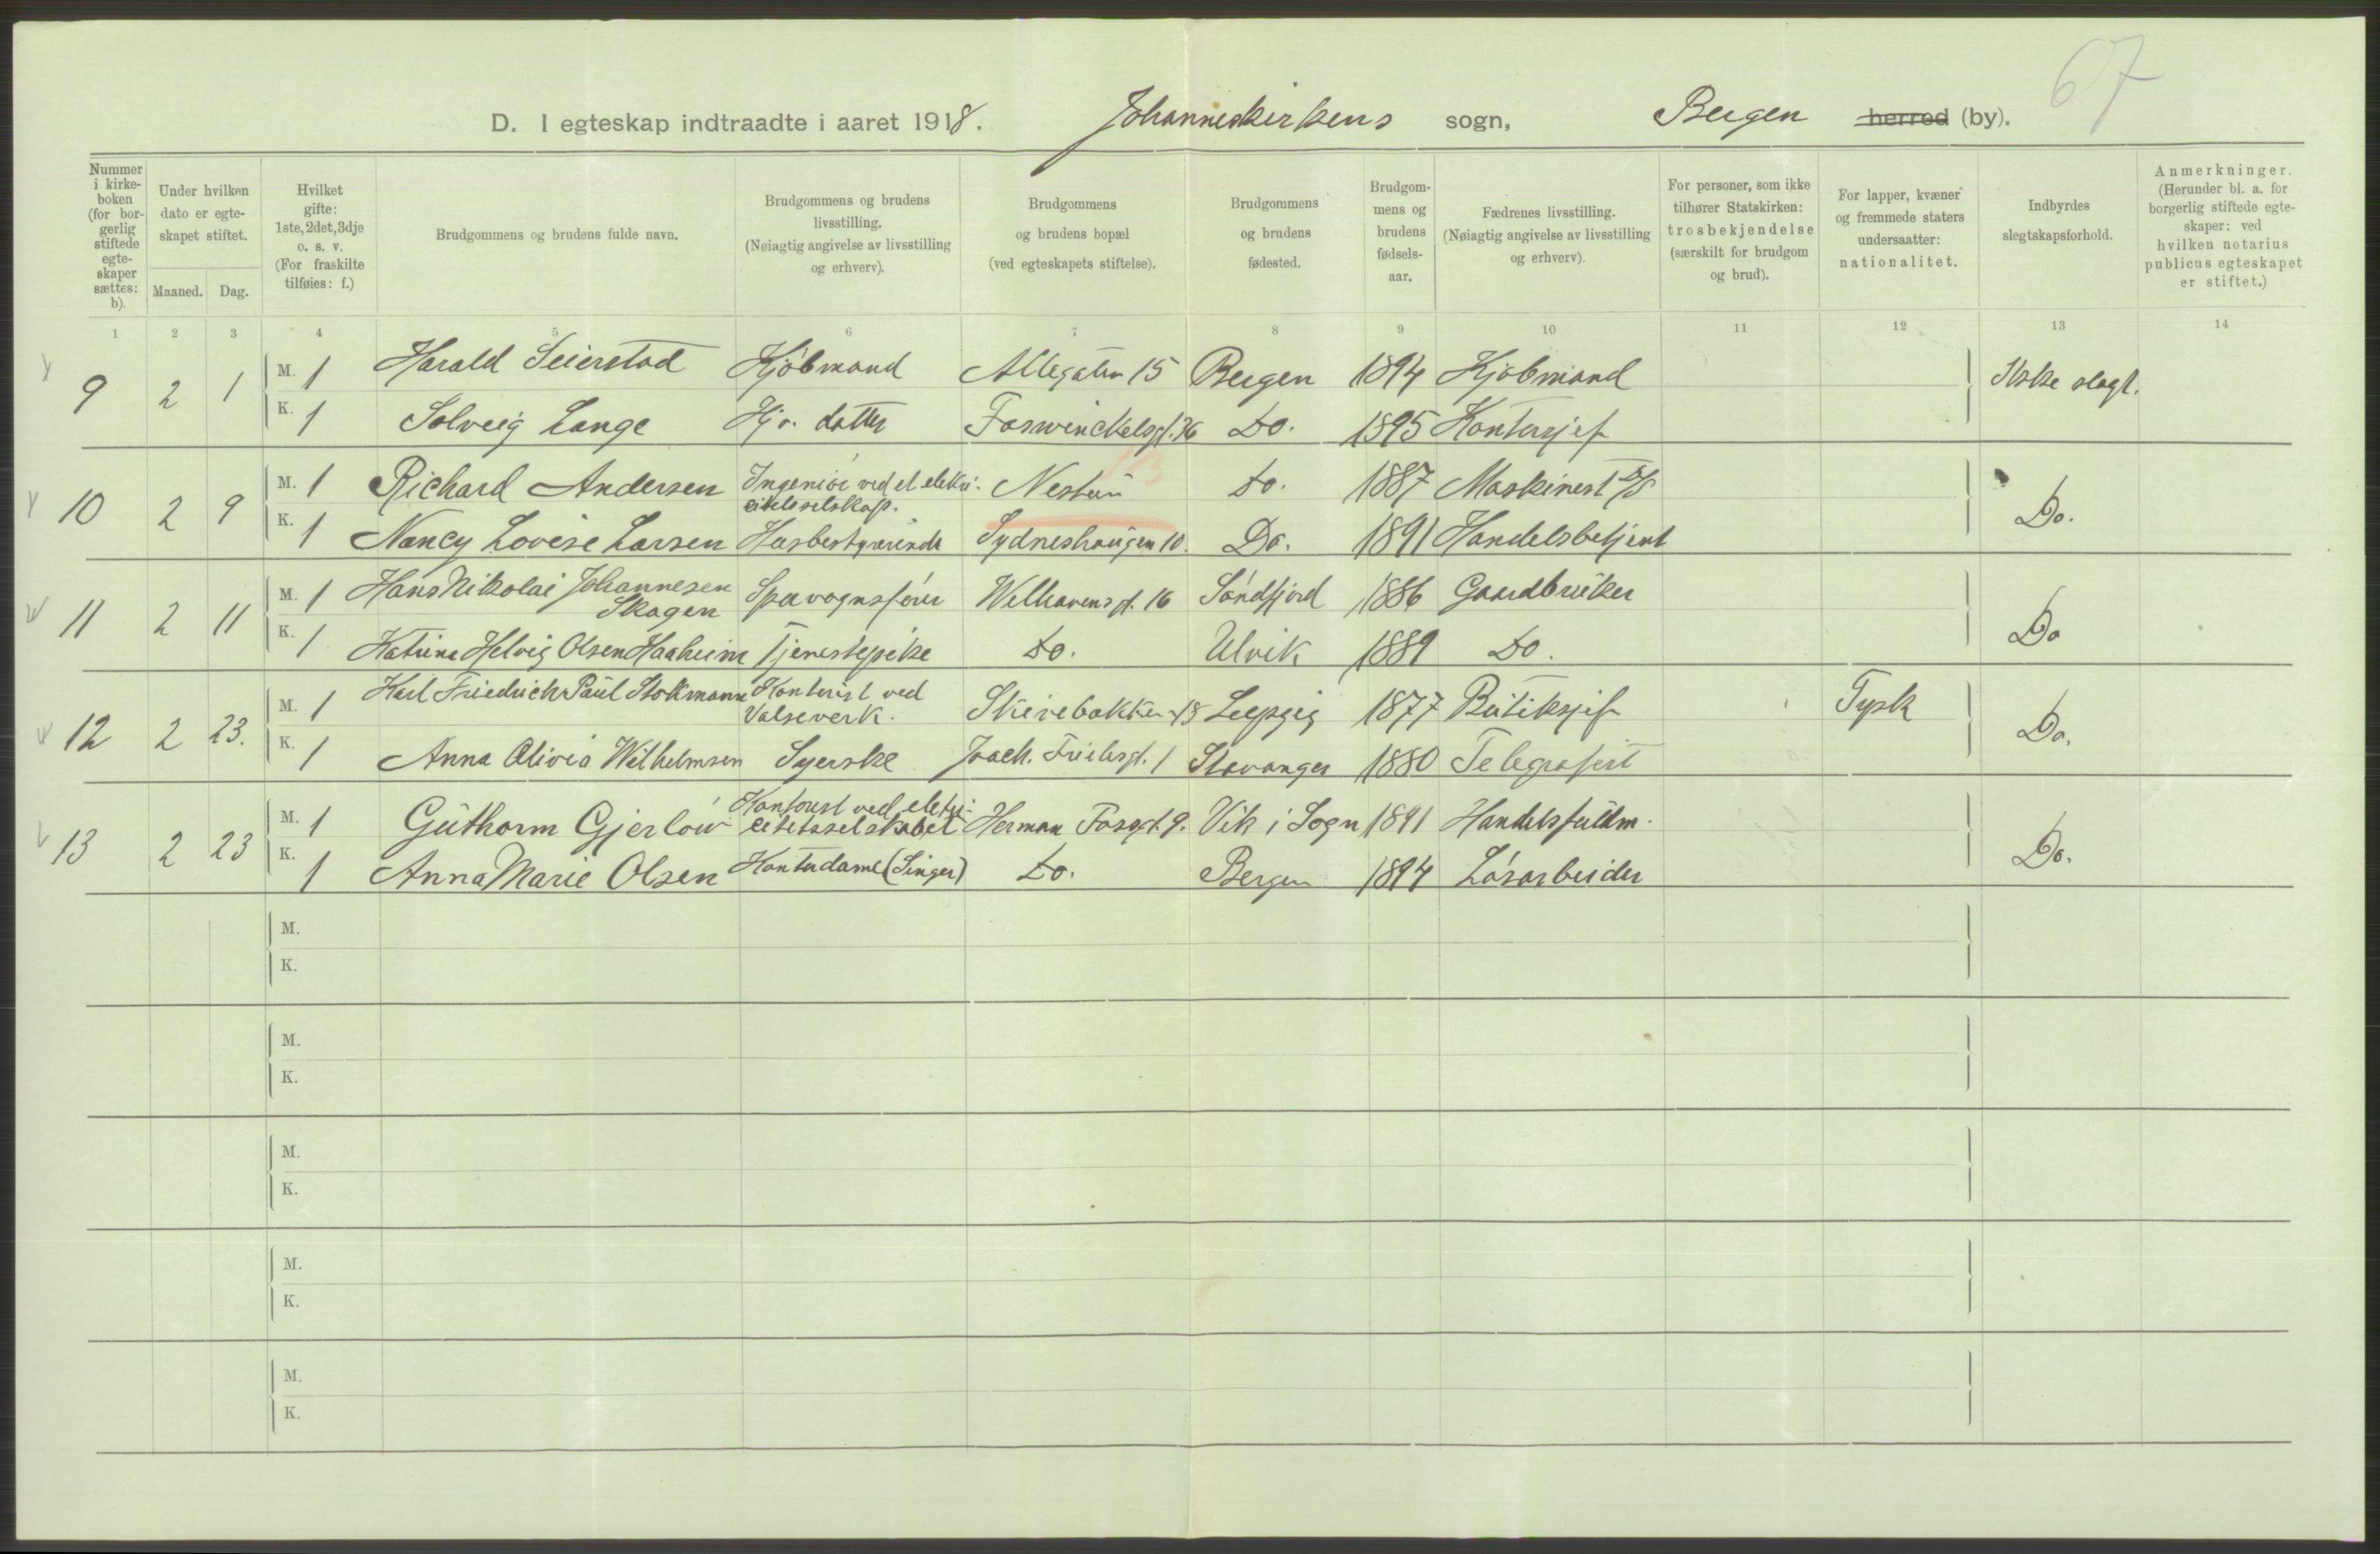 67
D. I egteskap indtraadte i aaret 1918. Johanneskirkens sogn, Bergen herred (by).
Nummer i kirke-boken (for bor-gerlig stiftede egte-skaper sættes: b).
Under hvilken dato er egte-skapet stiftet.
Maaned. Dag.
Hvilket gifte: 1ste, 2det, 3dje o. s. v. (For fraskilte tilføies: f.)
Brudgommens og brudens fulde navn.
Brudgommens og brudens livsstilling. (Nøiagtig angivelse av livsstilling og erhverv).
Brudgommens og brudens bopæl (ved egteskapets stiftelse).
Brudgommens og brudens fødested.
Brudgom-mens og brudens fødsels-aar.
Fædrenes livsstilling. (Nøiagtig angivelse av livsstilling og erhverv).
For personer, som ikke tilhører Statskirken: trosbekjendelse (særskilt for brudgom og brud).
For lapper, kvæner og fremmede staters undersaatter: nationalitet.
Indbyrdes slegtskapsforhold.
Anmerkninger. (Herunder bl. a. for borgerlig stiftede egte-skaper: ved hvilken notarius publicus egteskapet er stiftet.)
1 2 3 4 5 6 7 8 9 10 11 12 13 14
9 2 1 M. 1 Harald Seierstad Kjøbmand Allegaten 15 Bergen 1894 Kjøbmand Ikke slegt.
K. 1 Solveig Lange Kjø. datter Foswinckelsgt. 36 Do. 1895 Kontorsjef
10 2 9 M. 1 Richard Andersen Ingeniør ved et elektri- Nestun Do. 1887 Maskinest D/S Do.
citetsselskap.
K. 1 Nancy Lovise Larsen Husbestyrerinde Sydneshaugen 10. Do. 1891 Handelsbetjent
11 2 11 M. 1 Hans Nikolai Johannesen Sporvognsfører Welhavensgt. 16 Søndfjord 1886 Gaardbruker Do
Skagen
K. 1 Katrina Helvig Olsen Haaheim Tjenestepike Do. Ulvik 1889 Do.
12 2 23. M. 1 Karl Friedrich Paul Stokmann Kontorist ved Skivebakken 18 Leipzig 1877 Butiksjef Tysk Do.
Valseverk.
K. 1 Anna Olivia Wilhelmsen Syerske Joach. Frielesgt. 1 Stavanger 1880 Telegrafist
13 2 23 M. 1 Guthorm Gjerløw Kontorist ved elektri- Herman Fossgt. 9. Vik i Sogn 1891 Handelsfuldm. Do.
citetsselskabet
K. 1 Anna Marie Olsen Kontordame (Singer) Do. Bergen 1894 Løsarbeider
M.
K.
M.
K.
M.
K.
M.
K.
M.
K.